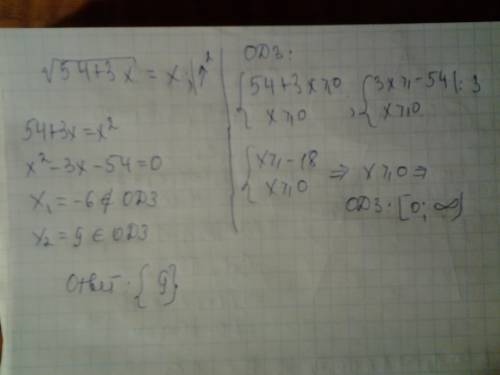 √54+3x = x |↑²
54+3x=x²
x²-3x-54=0
x₁=-6∉ОДЗ
x₂=9∈ОДЗ
Ответ: {9}
ОДЗ:
{54+3x≥0 {3x≥-54|:3
{x≥0 , {x≥0
{x≥-18
{x≥0 ⇒ x≥0 ⇒
ОДЗ: [0; ∞)